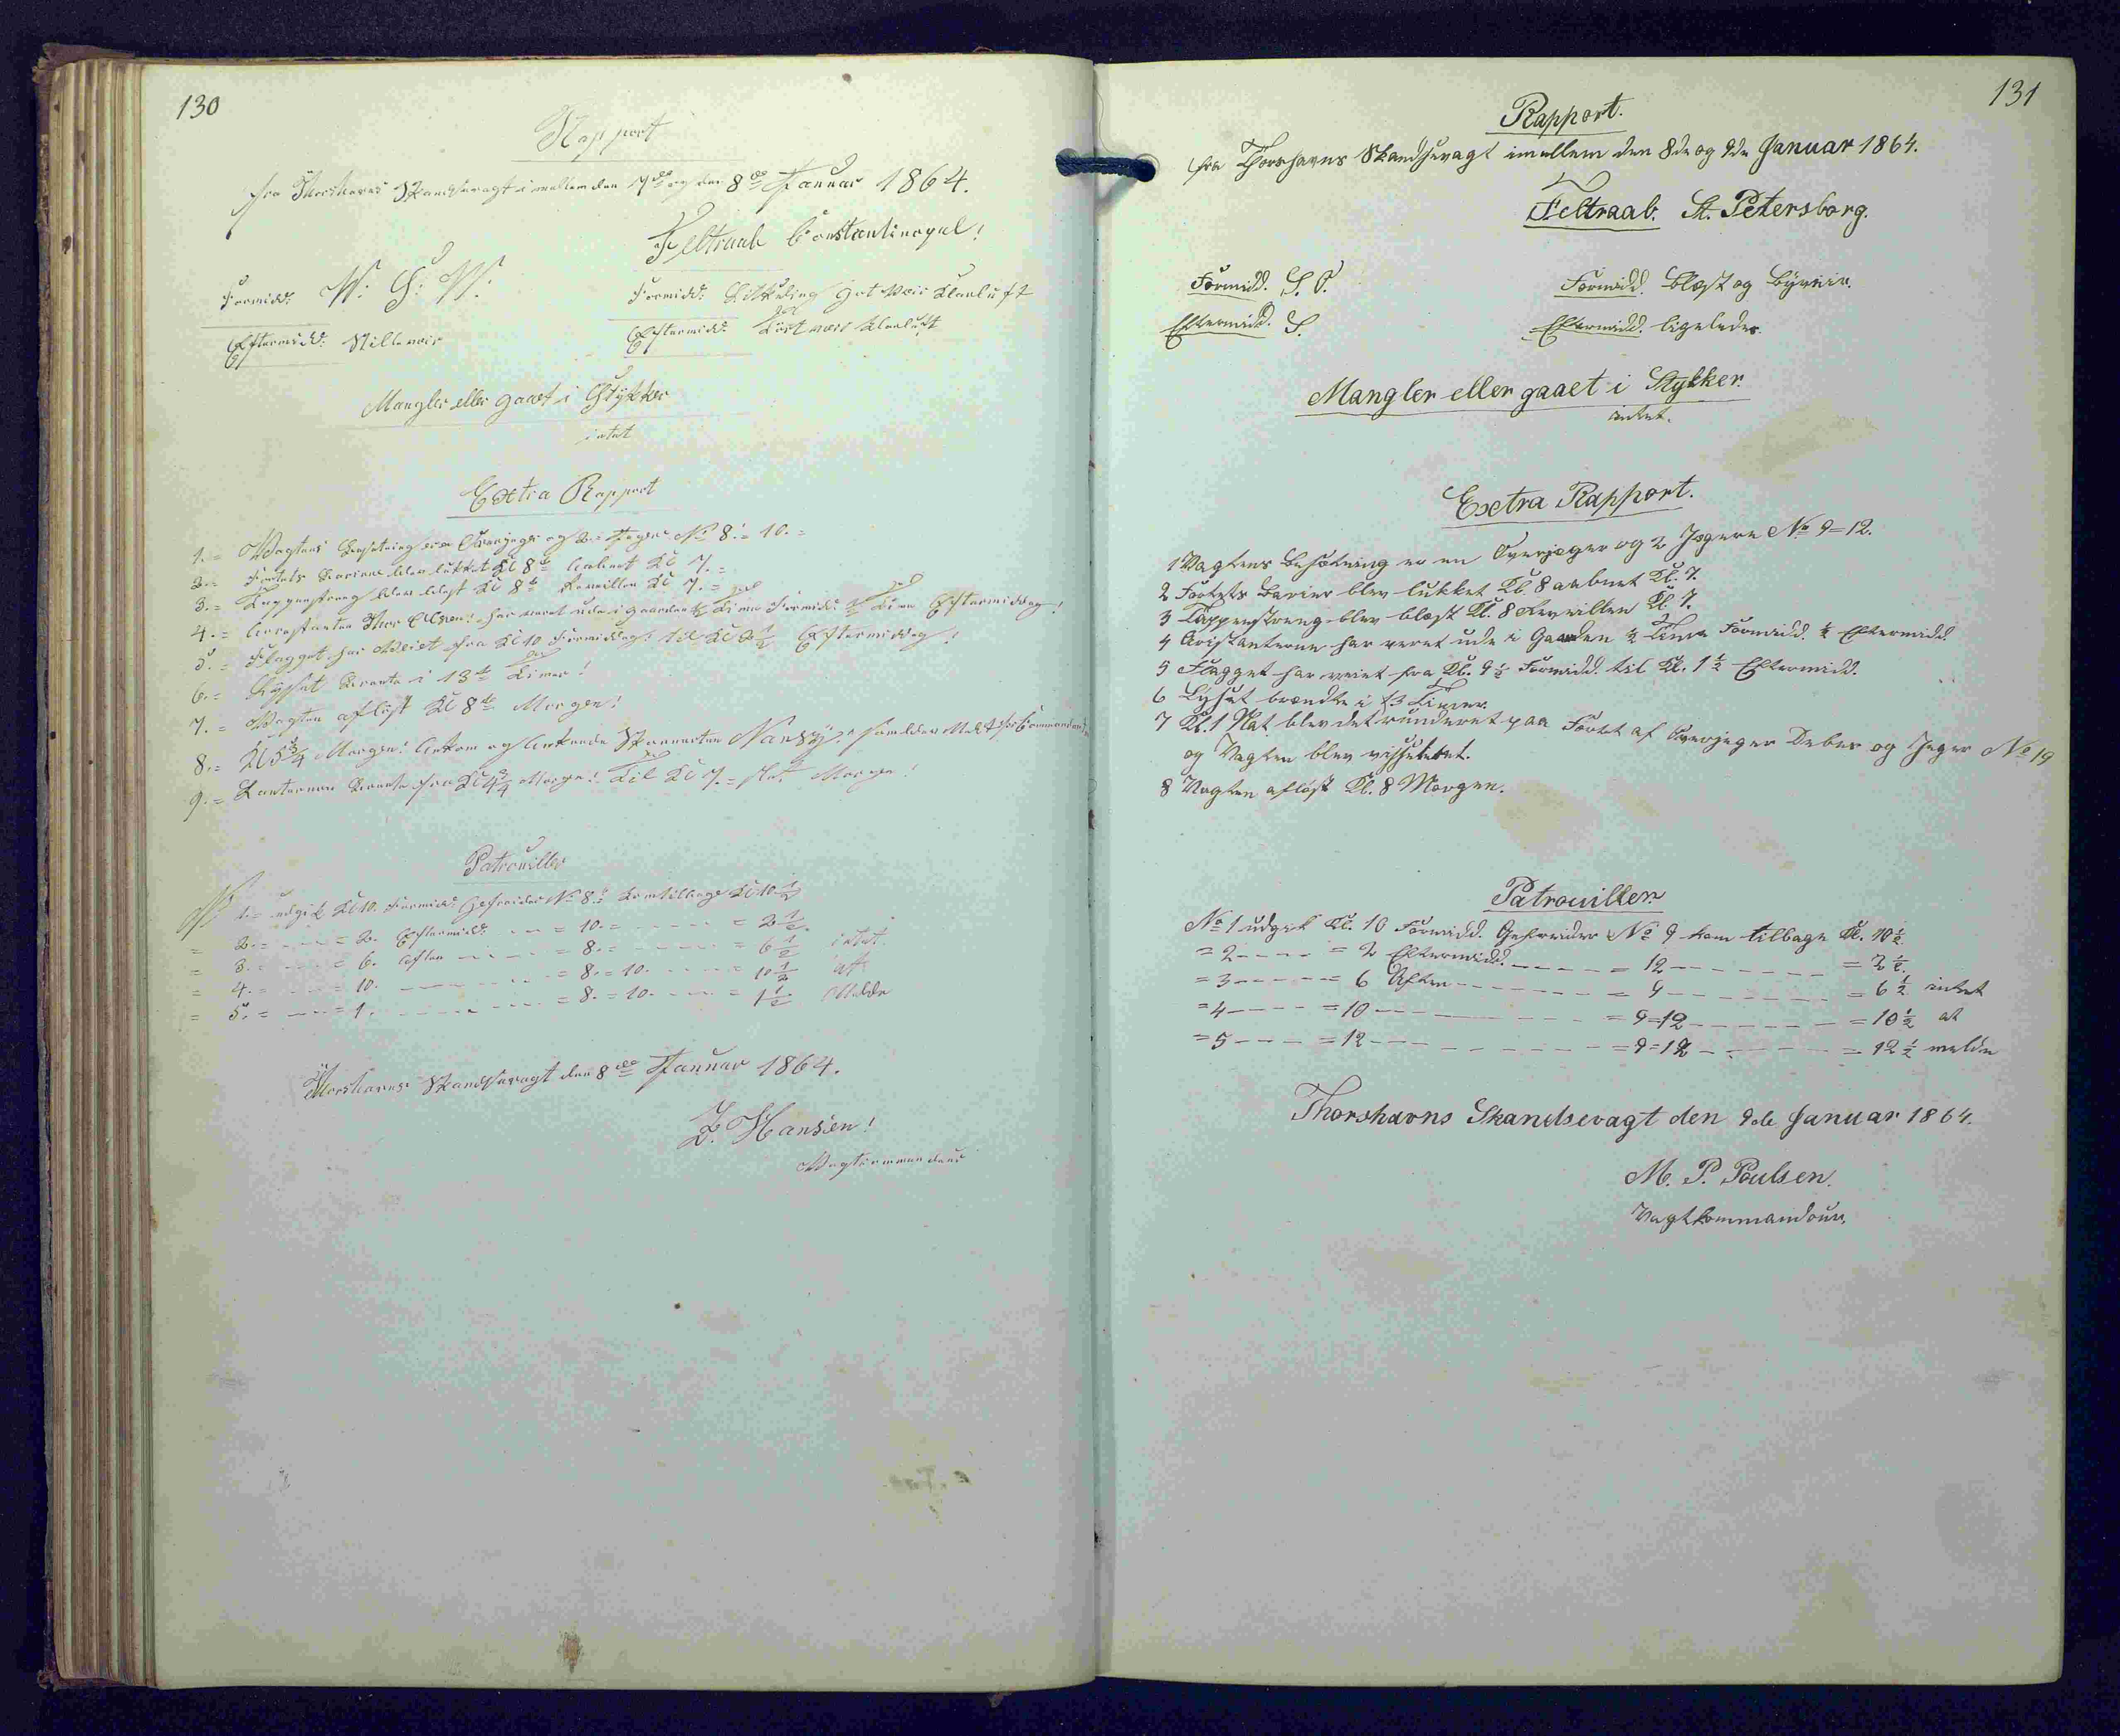 130
Rapport
fra Thorshavns Skandsevagt imellem den 7de og den 8de Januar 1864.
Feltraab Constantinopel!
Formidd: W. S: W. Formidd: Godt Veir Klarluft
Eftermidd: Stilleveir Eftermidd: Veir Klarluft
Mangler eller gaaet i Stykker
intet
Extra Rapport
1.= Vagtens Besetning er en Overjeger og 2= Jeger No 8.= 10.=
2.= Fortets Bariere blev lukket Kl 8te aabnet Kl 7.=
3.= Tappenstreng blev blest Kl 8te Reveillen Kl 7.=
4.= Arrestanten Thor Olsen! har veret ude i Gaarden ½ Time Formidd: ½ Time Eftermiddag!
5.= Flagget har Veiet fra Kl 10 Formiddag! til Kl 2½ Eftermiddag!
6.= Lyset Brente i 13te Timer!
7.= Vagten aflöst Kl 8te Morgen!
8.= Kl 5¾ Morgen! Ankom og Ankrede Skonnerten Nansÿ som blev Meldt for Commandanten
9.= Lanternen Brente fra Kl 4¾ Morgen! Til Kl 7.= slet Morgen!
Patrouiller
No 1.= udgik Kl 10. Formidd: Gefreider No 8.= kom tilbage Kl 10½
= 2.= - - = 2. Eftermidd: - - = 10.= - - - = 2½.
= 3.= - - = 6. Aften - - - = 8.= - - - = 6½ intet
= 4.= - - = 10. - - - = 8.=10. - - - = 10½ at
= 5.= - - = 1. - - - = 8.=10. - - - = 1½. Melde
Thorshavns Skandsevagt den 8de Januar 1864.
Z. Hansen!
Vagtcommandeur
131
Rapport.
fra Thorshavns Skandsevagt imellem den 8de og 9de Januar 1864.
Feltraab. St. Petersborg.
Formidd. S. O. Formidd. Blæst og Byveir.
Eftermidd. S. Eftermidd. ligeledes.
Mangler eller gaaet i Stykker.
intet.
Exetra Rapport.
1 Vagtens Besætning er en Overjæger og 2 Jægere No 9=12.
2 Fortets Barier blev lukket Kl. 8 aabnet Kl. 7.
3 Tappenstreng blev blæst Kl. 8 Reveillen Kl. 7.
4 Aristanterne har veret ude i Gaarden ½ Time Formidd. ½ Eftermidd.
5 Flagget har veiet fra Kl. 9½ Formidd. til Kl. 1½ Eftermidd.
6 Lyset brændte i 13 Timer.
7 Kl. 1 Nat. blev det runderet paa Fortet af Overjeger Debes og Jeger No 19
og Vagten blev visseteret.
8 Vagten afløst Kl. 8 Morgen.
Patrouiller
No 1 udgik Kl. 10 Formidd. Gefreider No 9 kom tilbage Kl. 10½.
= 2 - - - = 2 Eftermidd. - - - = 12 - - - = 2½.
= 3 - - - = 6 Aften - - - = 9 - - - = 6½ intet
= 4 - - - = 10 - - - = 9=12 - - - = 10½ at
= 5 - - - = 12 - - - = 9=12 - - - = 12½ melde
Thorshavns Skandsevagt den 9de Januar 1864.
M. P. Poulsen.
Vagtkommandeur.